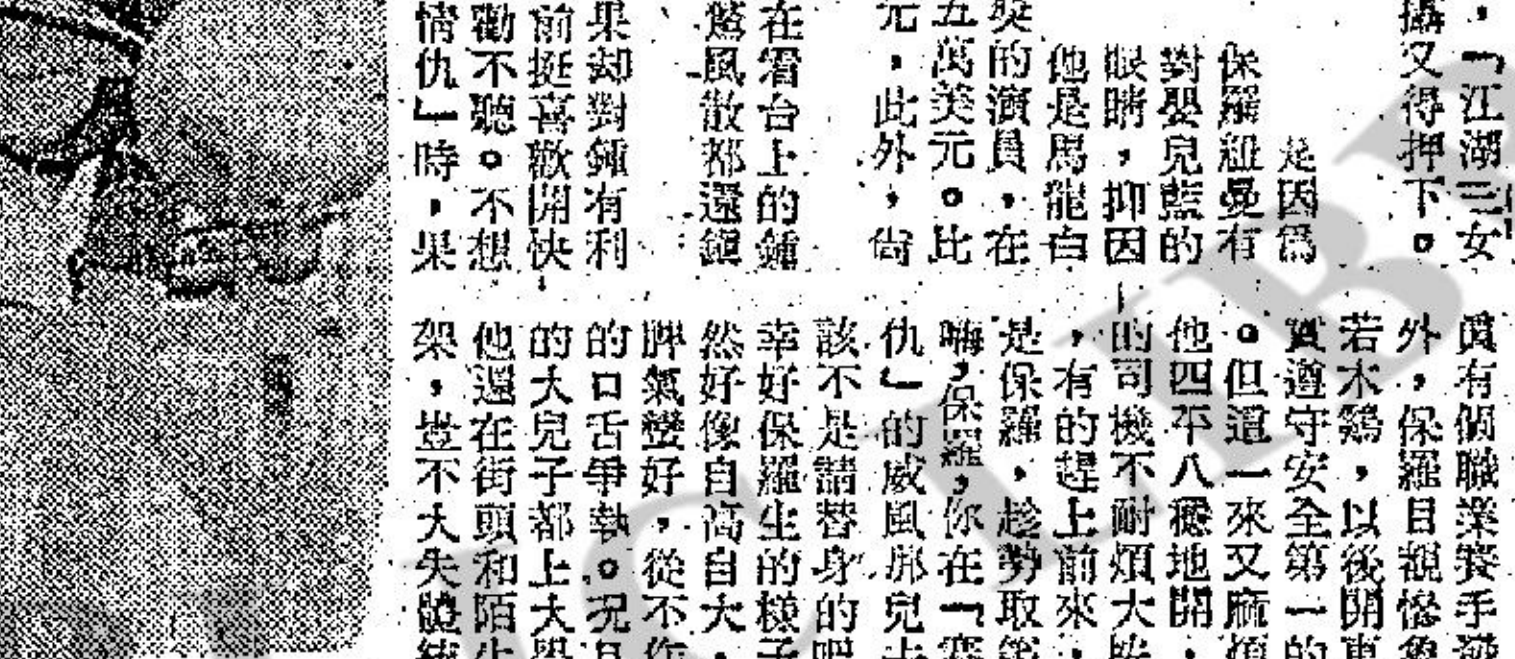 ，「江湖三女
攝又得押下。
是因爲
保羅紐曼有
對嬰兒藍的
眼睛，抑因
他是馬龍白
的演員，在
五萬美元。比
元，此外，尙
在看台上的鍾
風散都還鎭
果却對鍾有利
前挺喜歡開快
勸不聽。不想
情仇」時，果
有個職業賽手
外，保羅目覩慘象
若木鷄，以後開車
實遵守安全第一的
。但這一來又麻煩
他四平八穩地開，
的司機不耐煩大
，有的趕上前來，
是保羅，趁勢取
嗨，保羅，你在「
仇」的威風那兒去
該不是請替身的吧
幸好保羅生的樣子
然好像自高自大，
脾氣蠻好，從不作
的口舌爭執。况且
的大兒子都上大學
他還在街頭和陌生
架，豈不大失體統